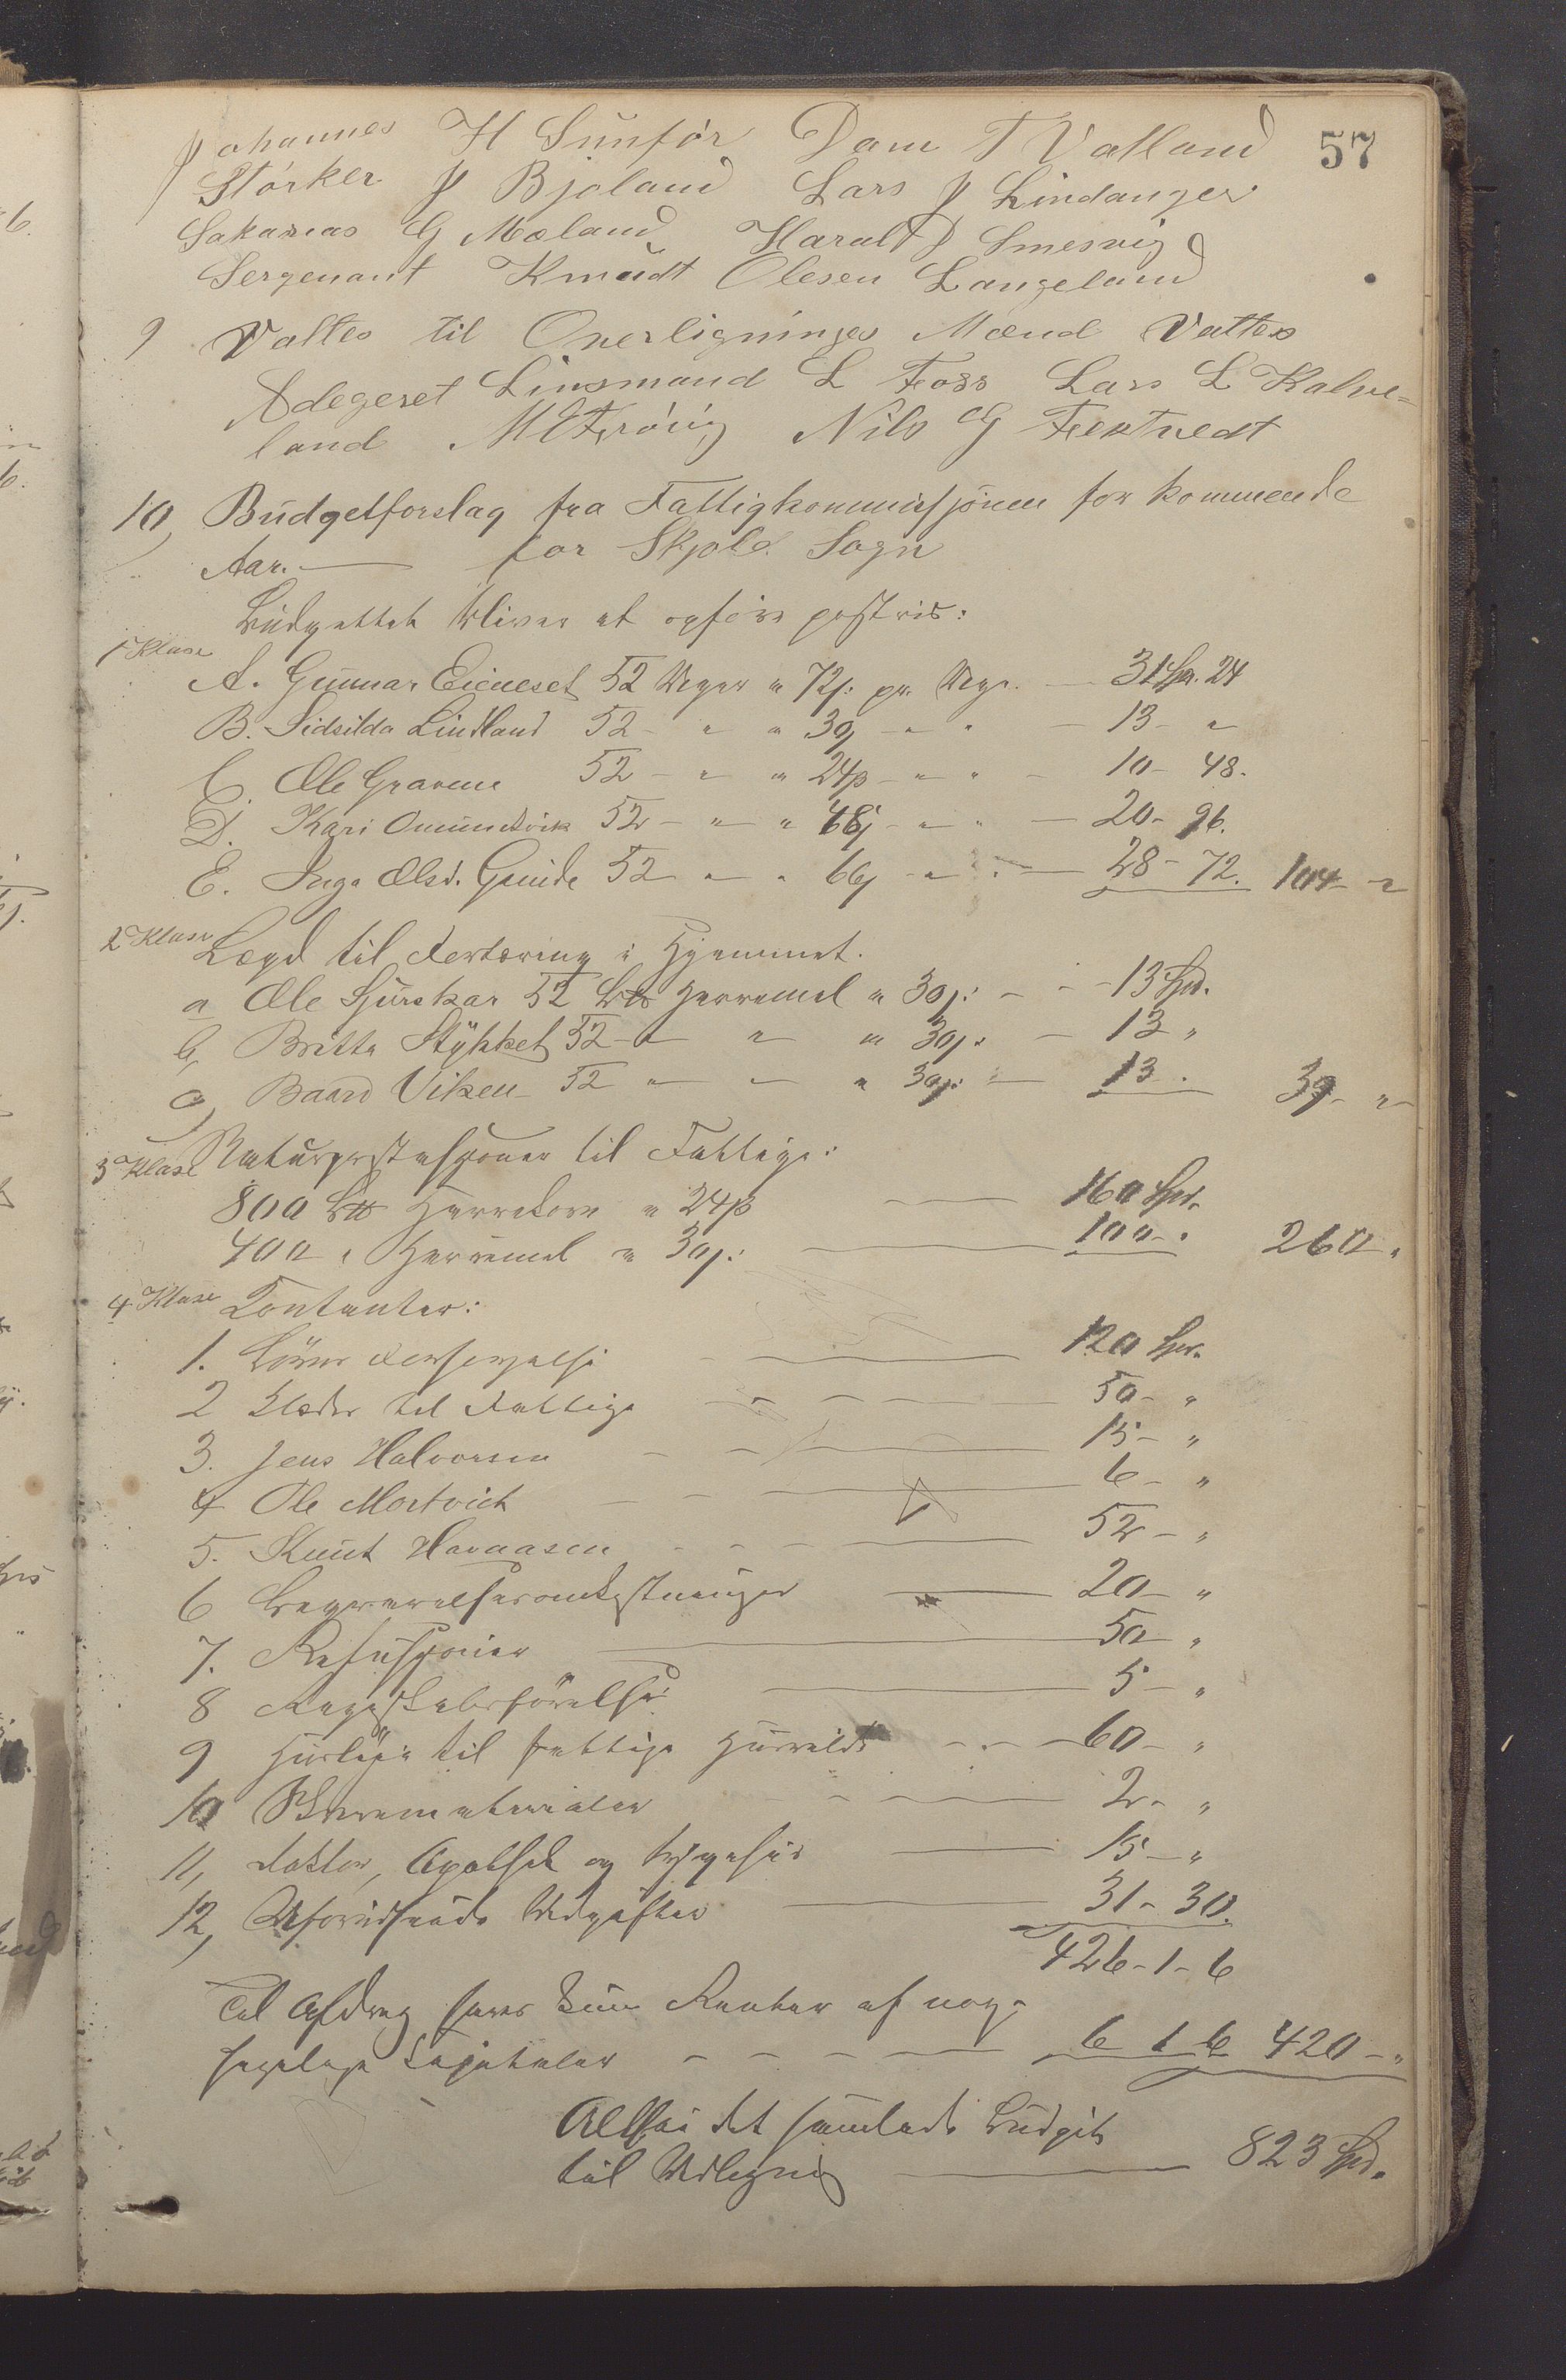 57
Johannes H Sunför Dam T Valland
Störker J Bjoland Lars J Lindanger
Sakarias G Mæland Harald D Smesvig
Sergenant Knudt Olesen Langeland
9 Valtes til Overligninges Mænd Valtes
Adegeset Linsmand L Foss Lars L Kalve=
land Nils G Feestvedt
10, Budgetforslag fra Fattigkommissjonen for kommende
Aar. — for Skjold Sogn
Budgettet bliver at opföre postvis:
1 Klase
A. Gunnar Eieneset 52 Uger a 72ß: pr. Uge. — 31 Spd. 24
B. Sidsilda Lindland 52 - " a 30ß - " " — 13 - "
C. Ole Gravene 52 - " a 24ß - " " - 10 - 48.
D. Kari Omundsvik 52 - " a 48ß - " " — 20 - 96.
E. Inga Olsd. Grinde 52 " a 66ß - " " — 28 - 72. 104 - "
2 Klase Lægd til Fortæring i Hjemmet.
a Ole Sjurskar 52 havremel a 30ß: - - - 13 Spd.
b, Britta Stykket 52 - " " a 30ß: - 13 "
c, Baard Viken - 52 " " a 30ß: — 13 . 39 - "
3 Klase Naturprestasjoner til Fattige:
800 Havrekorn a 24ß — 160 Spd.
400 " Havremel a 30ß: — 100 - " 260 "
4 Klase Contanter:
1. Börns Forsørgelse — 120 Spd.
2 Klæder til Fattige - - - — 50 - "
3. Jens Halvorsen - - — 15 - "
4 Ole Mortvich - - — 6 - "
5. Knut Havaasen - - - — 52 - "
6 Begravelsesomkostninger — 20 - "
7. Refusjoner — 50 - "
8 Regnskabsførelse — 5 - "
9 Husleie til fattige Husvilde - - — 60 - "
10 Skrivematerialer - - — 2 - "
11, Doktor, Apothek og Sygehus — 15 - "
12, Uforudseede Udgifter — 31 - 30.
426 - 1 - 6
Til Afdrag haves kun Renter af nogle
Kapitaler - - - — 6 1 6 420 - "
Altsaa det samlede Budget
til Udligning — 823 Spd.